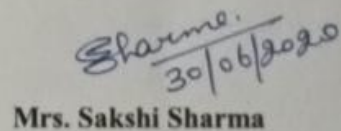 Sharma.
30/06/2020
Mrs. Sakshi Sharma